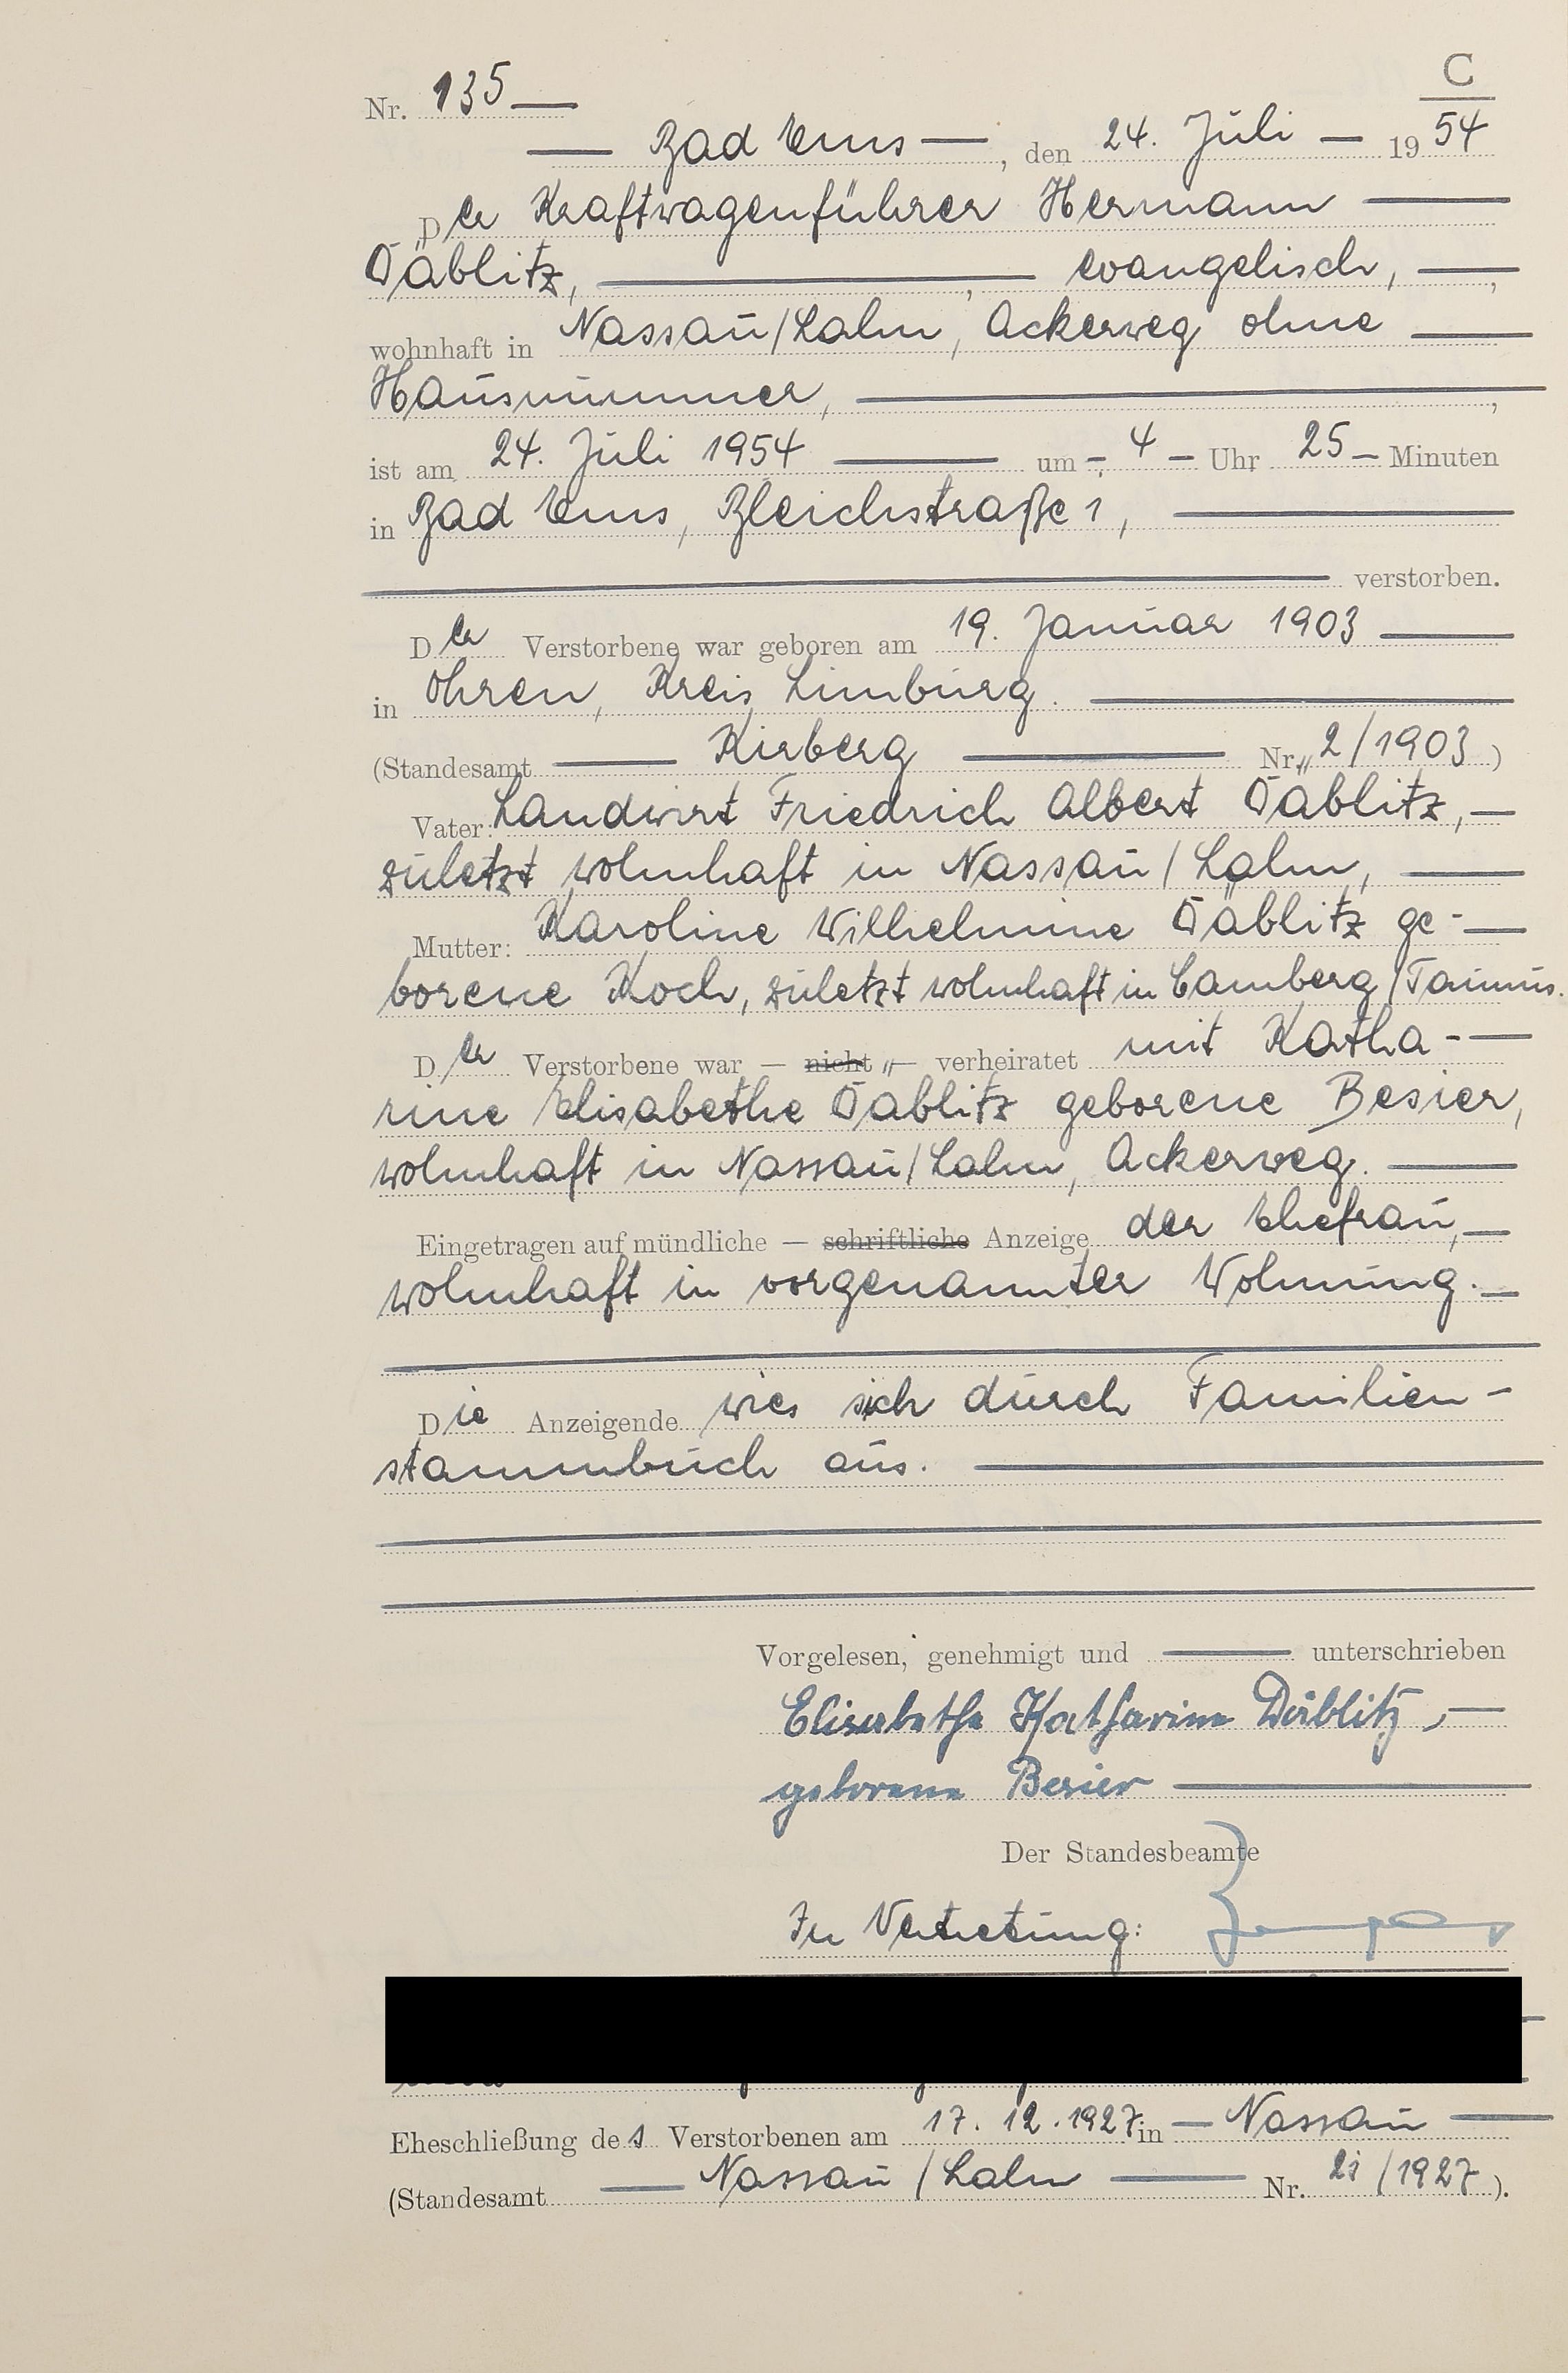 C
Nr. 135
Bad Ems, den 24. Juli 1954
Der Kraftwagenführer Hermann
Däblitz, evangelisch,
wohnhaft in Nassau/Lahn, Ackerweg ohne
Hausnummer,
ist am 24. Juli 1954 um 4 Uhr 25 Minuten
in Bad Ems, Bleichstraße 1,
verstorben.
Der Verstorbene war geboren am 19. Januar 1903
in Ohren, Kreis Limburg.
(Standesamt Kirberg Nr. 2/1903)
Vater: Landwirt Friedrich Albert Däblitz,
zuletzt wohnhaft in Nassau/Lahn,
Mutter: Karoline Wilhelmine Däblitz ge-
borene Koch, zuletzt wohnhaft in Camberg/Taunus.
Der Verstorbene war — nicht — verheiratet mit Katha-
rine Elisabethe Däblitz geborene Besier,
wohnhaft in Nassau/Lahn, Ackerweg.
Eingetragen auf mündliche — schriftliche Anzeige der Ehefrau,
wohnhaft in vorgenannter Wohnung.
Die Anzeigende wies sich durch Familien-
stammbuch aus.
Vorgelesen, genehmigt und unterschrieben
Elisabethe Katharine Däblitz,
geborene Besier
Der Standesbeamte
In Vertretung:
Eheschließung des Verstorbenen am 17.12.1927 in Nassau
(Standesamt Nassau/Lahn Nr. 21/1927).